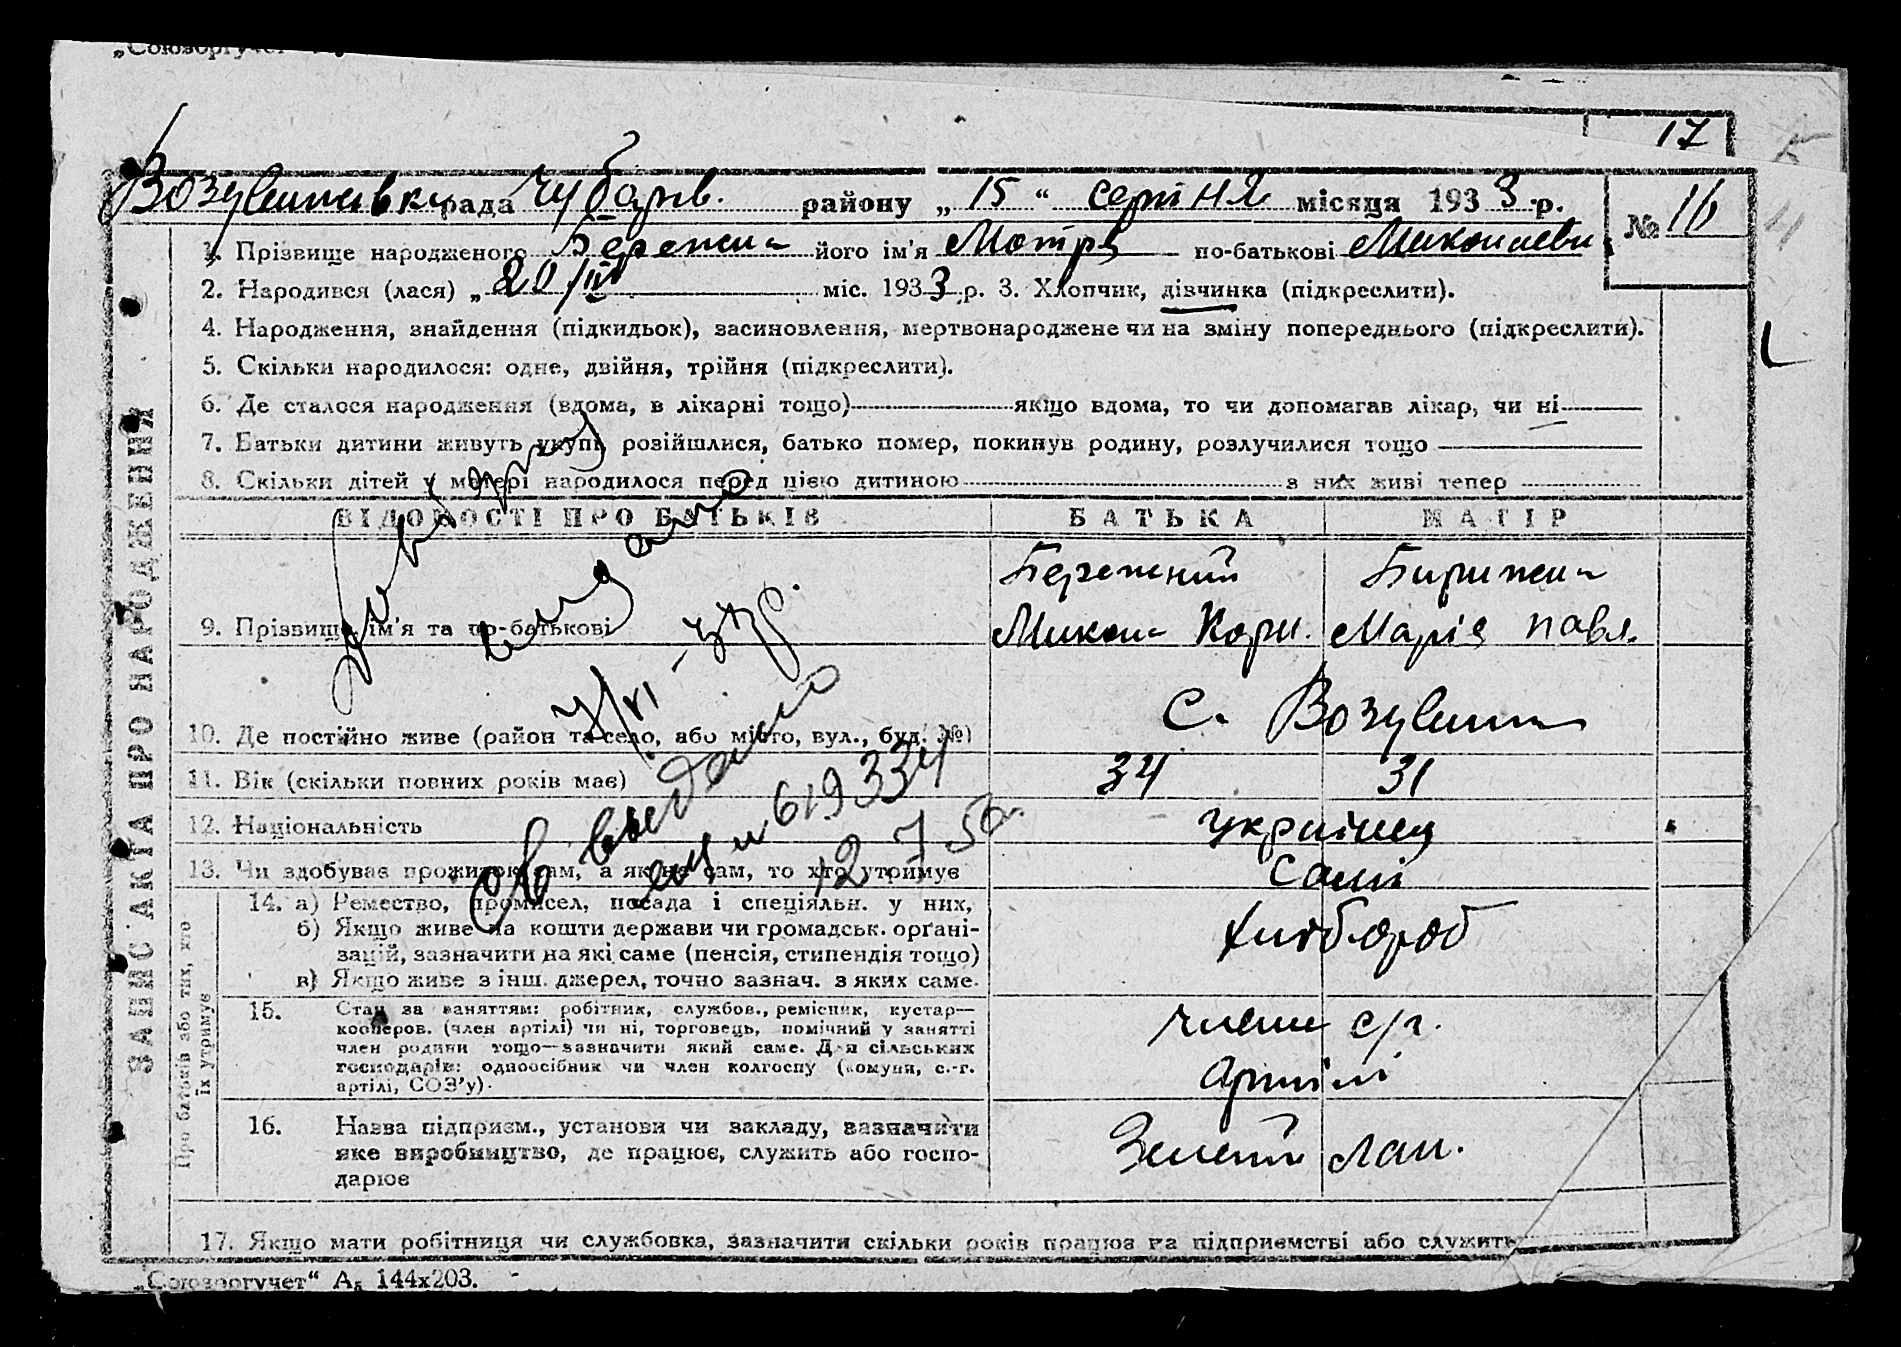 „Союзоргучет“
17
Возувашівка рада Чубарів. району „ 15 “ серпня місяця 1933 р.
№ 16
1. Прізвище народженого Бережна його ім'я Мотря по-батькові Миколаєвн
2. Народився (лася) „ 20/IV міс. 1933 р. 3. Хлопчик, дівчинка (підкреслити).
4. Народження, знайдення (підкидьок), засиновлення, мертвонароджене чи на зміну попереднього (підкреслити).
5. Скільки народилося: одне, двійня, трійня (підкреслити).
6. Де сталося народження (вдома, в лікарні тощо) якщо вдома, то чи допомагав лікар, чи ні
7. Батьки дитини живуть укупі, розійшлися, батько помер, покинув родину, розлучилися тощо
8. Скільки дітей у матері народилося перед цією дитиною з них живі тепер
ВІДОМОСТІ ПРО БАТЬКІВ БАТЬКА МАТІР
Бережний Бирижна
9. Прізвище, ім'я та по-батькові Микола Корн. Марія Павл.
10. Де постійно живе (район та село, або місто, вул., буд. №) С.
11. Вік (скільки повних років має) 34 31
12. Національність українец
13. Чи здобуває прожиток сам, а як не сам, то хто утримує Самі
14. а) Ремество, промисел, посада і спеціяльн. у них,
б) Якщо живе на кошти держави чи громадськ. орґані-
зацій, зазначити на які саме (пенсія, стипендія тощо)
в) Якщо живе з інш. джерел, точно зазнач. з яких саме.
хлібороб
15. Стан за заняттям: робітник, службов., ремісник, кустар—
кооперов. (член артілі) чи ні, торговець, помічний у занятті
член родини тощо—зазначити який саме. Для сільських
господарів: одноосібник чи член колгоспу (комуни, с.-г.
артілі, СОЗ'у).
члени с/г.
артілі
16. Назва підприєм., установи чи закладу, зазначити
яке виробництво, де працює, служить або госпо-
дарює
Зелений лан.
17. Якщо мати робітниця чи службовка, зазначити скільки років працює на підприємстві або служить
ЗАПИС АКТА ПРО НАРОДЖЕННЯ
Про батьків або тих, хто
їх утримує
видано
7/VI – 37р.
Св выдано
619334
12 7 50г.
„Союзоргучет“ А₅ 144х203.